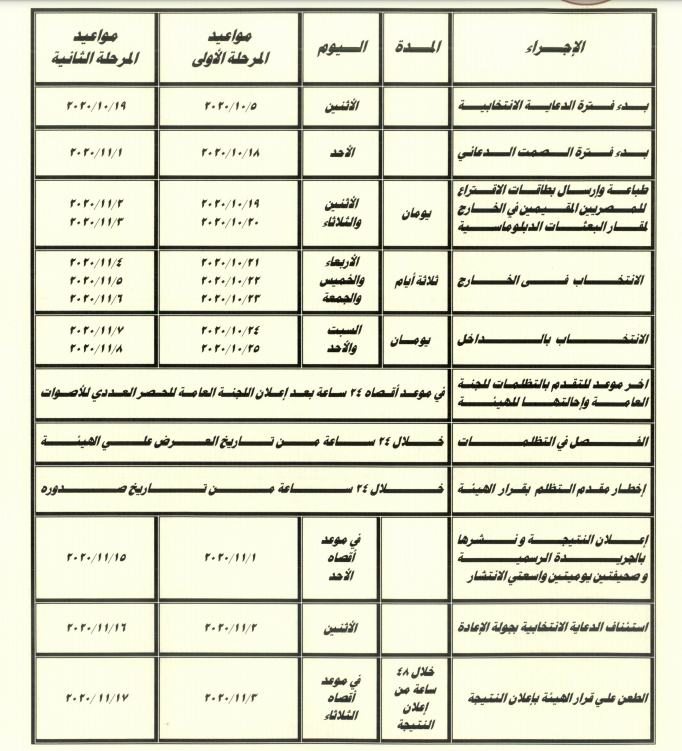 الإجراء
المدة
اليوم
مواعيد
المرحلة الأولى
مواعيد
المرحلة الثانية
بدء فترة الدعاية الانتخابية
الأثنين
٢٠٢٠/١٠/٥
٢٠٢٠/١٠/١٩
بدء فترة الصمت الدعائي
الأحد
٢٠٢٠/١٠/١٨
٢٠٢٠/١١/١
طباعة وإرسال بطاقات الاقتراع
للمصريين المقيمين في الخارج
لمقار البعثات الدبلوماسية
يومان
الأثنين
والثلاثاء
٢٠٢٠/١٠/١٩
٢٠٢٠/١٠/٢٠
٢٠٢٠/١١/٢
٢٠٢٠/١١/٣
الانتخاب فى الخارج
ثلاثة أيام
الأربعاء
والخميس
والجمعة
٢٠٢٠/١٠/٢١
٢٠٢٠/١٠/٢٢
٢٠٢٠/١٠/٢٣
٢٠٢٠/١١/٤
٢٠٢٠/١١/٥
٢٠٢٠/١١/٦
الانتخاب بالداخل
يومان
السبت
والأحد
٢٠٢٠/١٠/٢٤
٢٠٢٠/١٠/٢٥
٢٠٢٠/١١/٧
٢٠٢٠/١١/٨
اخر موعد للتقدم بالتظلمات للجنة
العامة وإحالتها للهيئة
في موعد أقصاه ٢٤ ساعة بعد إعلان اللجنة العامة للحصر العددي للأصوات
الفصل في التظلمات
خلال ٢٤ ساعة من تاريخ العرض علي الهيئة
إخطار مقدم التظلم بقرار الهيئة
خلال ٢٤ ساعة من تاريخ صدوره
إعلان النتيجة و نشرها
بالجريدة الرسمية
و صحيفتين يوميتين واسعتي الانتشار
في موعد
أقصاه
الأحد
٢٠٢٠/١١/١
٢٠٢٠/١١/١٥
استئناف الدعاية الانتخابية بجولة الإعادة
الأثنين
٢٠٢٠/١١/٢
٢٠٢٠/١١/١٦
الطعن علي قرار الهيئة بإعلان النتيجة
خلال ٤٨
ساعة من
إعلان
النتيجة
في موعد
أقصاه
الثلاثاء
٢٠٢٠/١١/٣
٢٠٢٠/١١/١٧